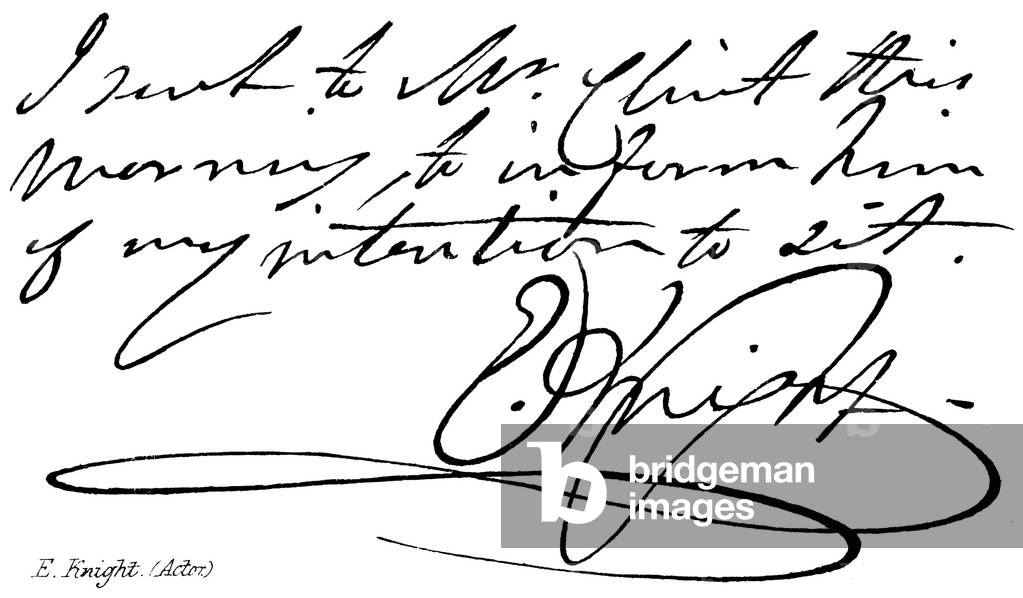 I sent to Mr. Clint this
morning, to inform him
of my intention to sit.
E. Knight -
b bridgeman
images
E. Knight. (Actor)